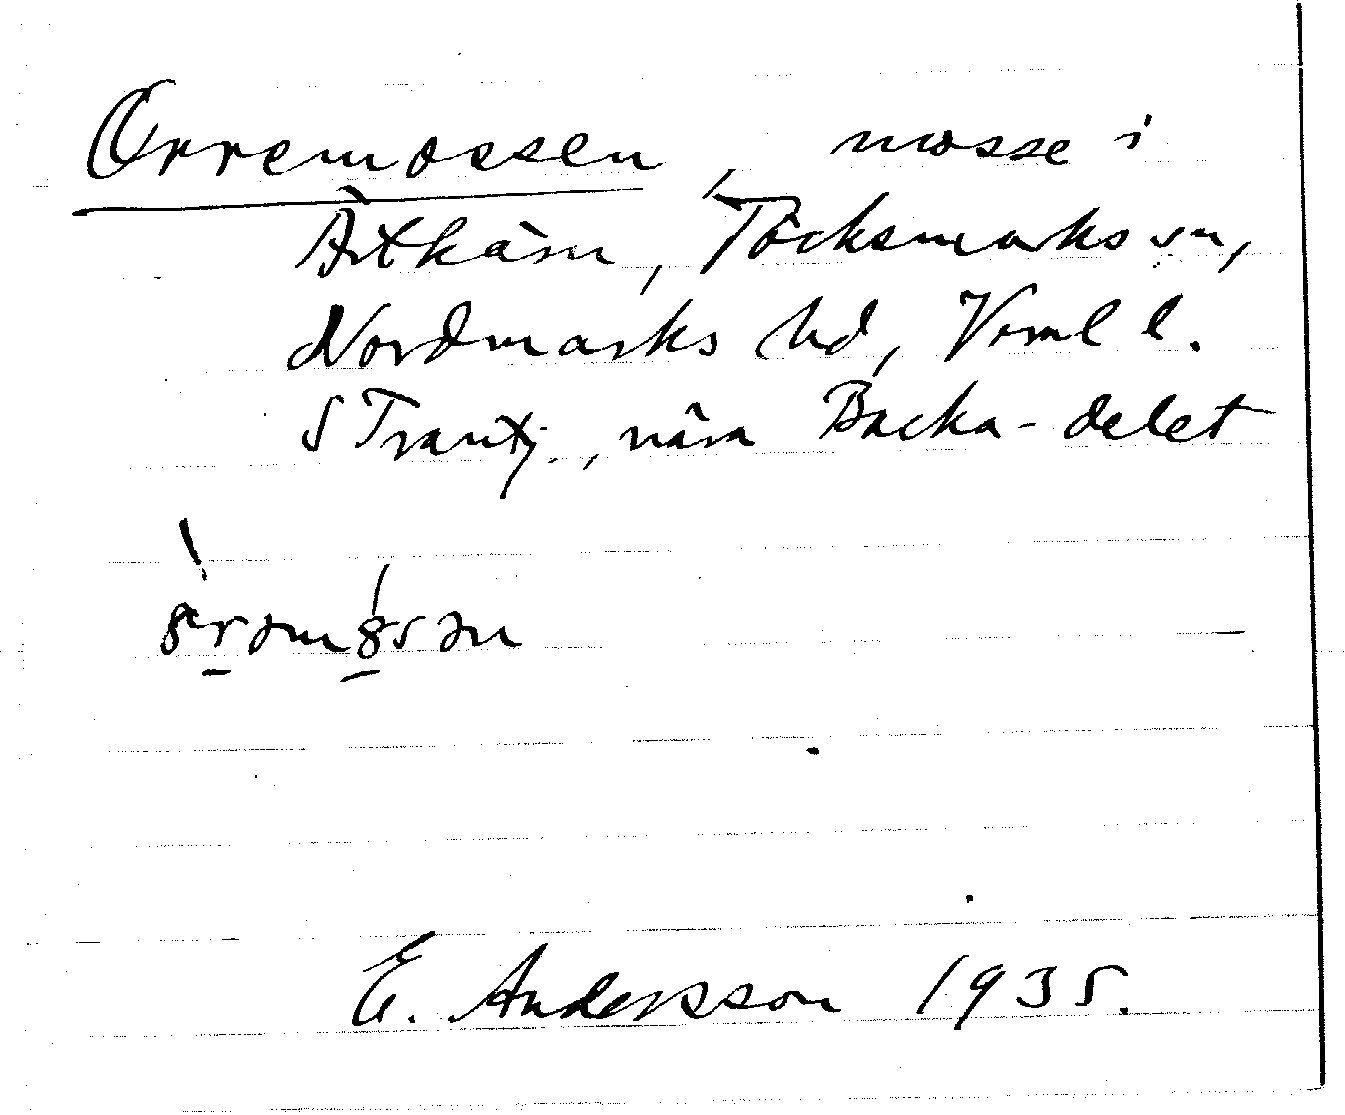 Orremossen, mosse i
Årtkärn, Töcksmarks sn,
Nordmarks hd, Verml l.
S Trantj., nära Backa-delet
E. Andersson 1935.